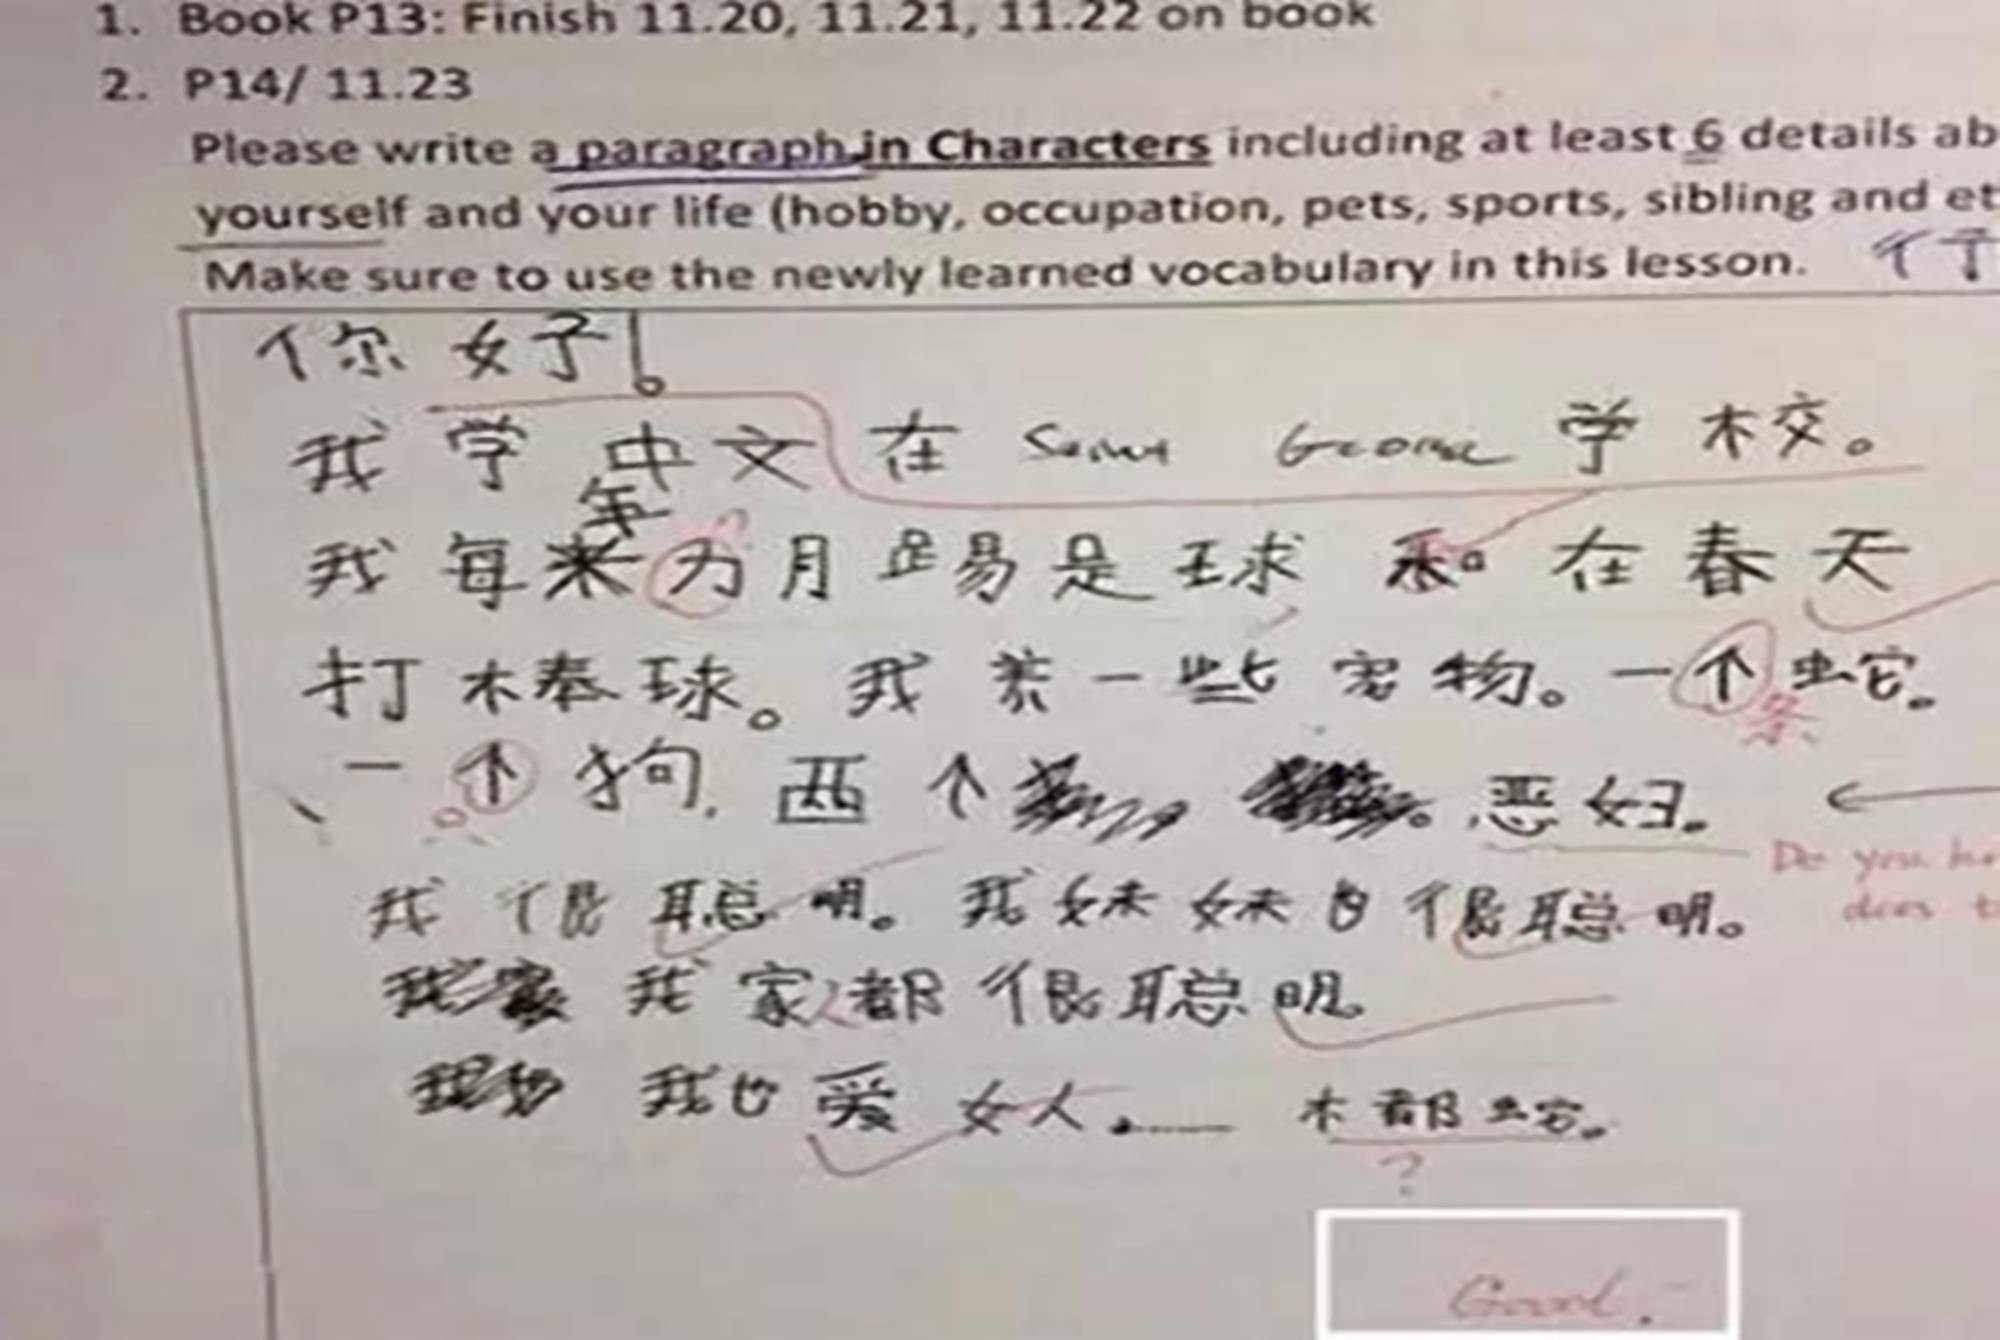 1. Book P13: Finish 11.20, 11.21, 11.22 on book
2. P14/ 11.23
Please write a paragraph in Characters including at least 6 details ab
yourself and your life (hobby, occupation, pets, sports, sibling and et
Make sure to use the newly learned vocabulary in this lesson.
你好!
我学中文在 Saint George 学校。
年
我每 为月踢是球 在春天
打棒球。我养一些宠物。一个蛇。
条
一个狗, 两个 恶妇。
Do you ha
does t
我很聪明。我妹妹也很聪明。
我家人都很聪明。
我也爱女人. 都蛇。
?
Good.